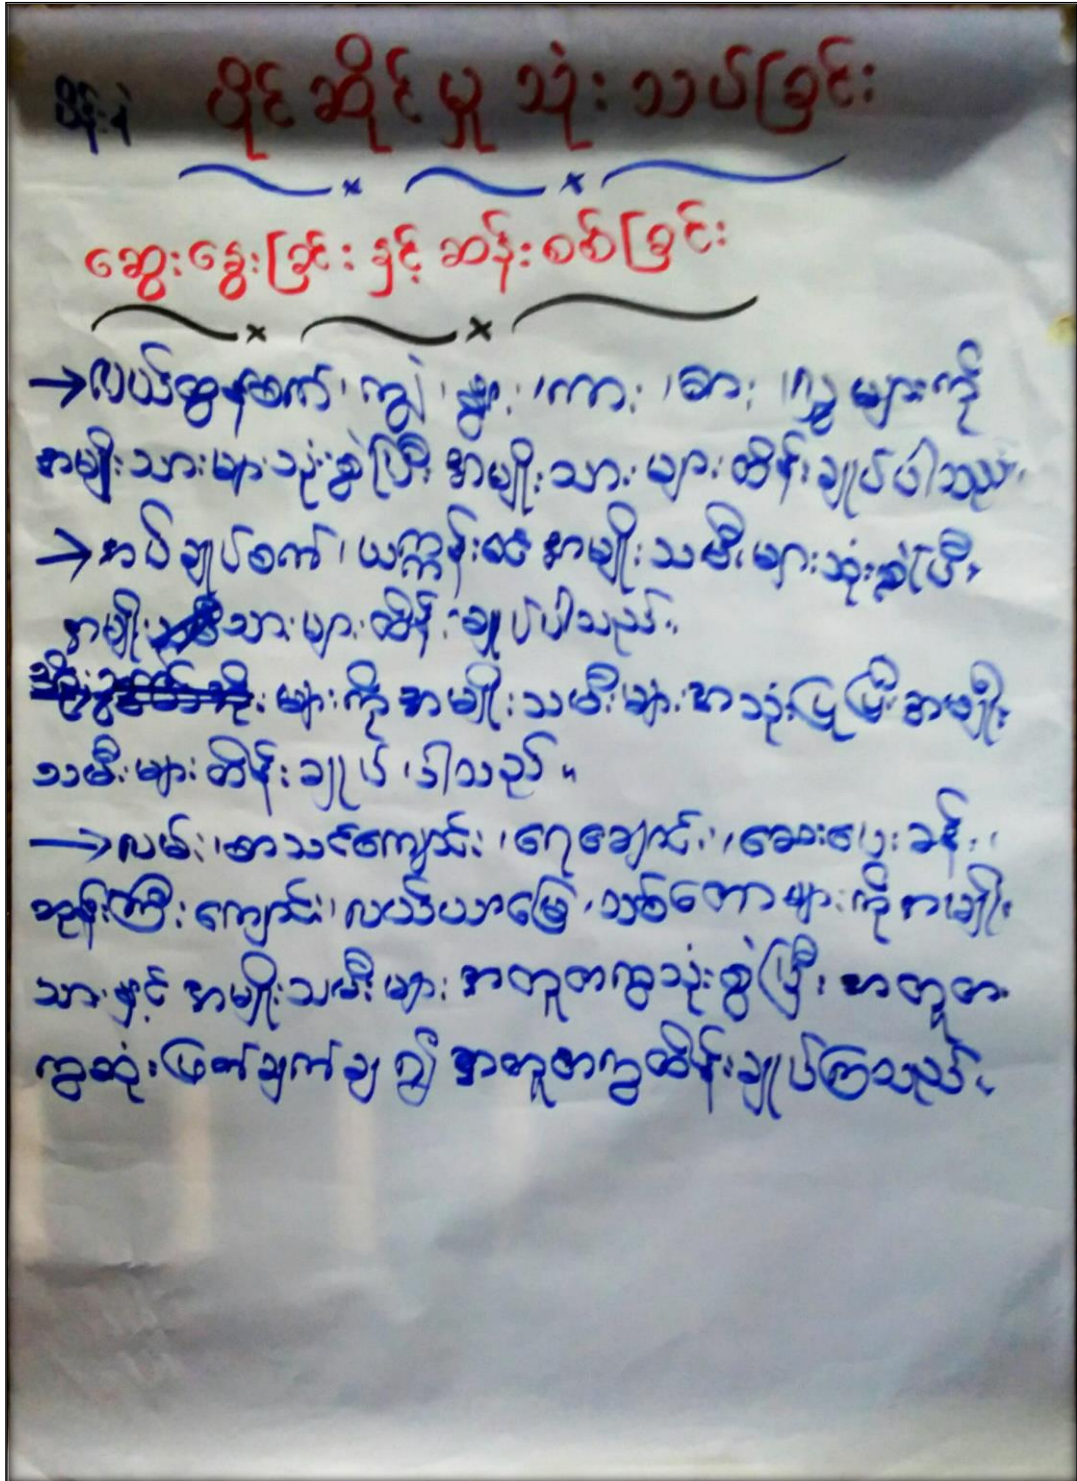 ပိုင်ဆိုင်မှု သုံးသပ်ခြင်း
ဆွေးနွေးခြင်း နှင့် ဆန်းစစ်ခြင်း
→လယ်ထွန်စက်၊ ကျွဲ၊ နွား၊ ကား၊ စား၊ လှေများကို
အမျိုးသားများသုံးစွဲပြီး အမျိုးသားများထိန်းချုပ်ပါသည်။
→အပ်ချုပ်စက်၊ ယက္ကန်းစင် အမျိုးသမီးများသုံးစွဲပြီး
အမျိုးသားများထိန်းချုပ်ပါသည်။
များကို အမျိုးသမီးများအသုံးပြုပြီး အမျိုး
သမီးများထိန်းချုပ်ပါသည်။
→လမ်း၊ စာသင်ကျောင်း၊ ရေချောင်း၊ ဆေးပေးခန်း၊
ဘုန်းကြီးကျောင်း၊ လယ်ယာမြေ၊ သစ်တောများကို အမျိုး
သားနှင့် အမျိုးသမီးများ အတူတကွသုံးစွဲပြီး အတူတ
ကွဆုံးဖြတ်ချက်ချ၍ အတူတကွထိန်းချုပ်ကြသည်။